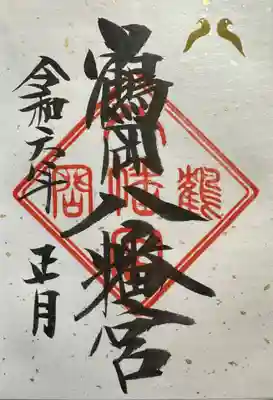 鶴岡八幡宮
令和六年 正月
鶴岡八幡宮